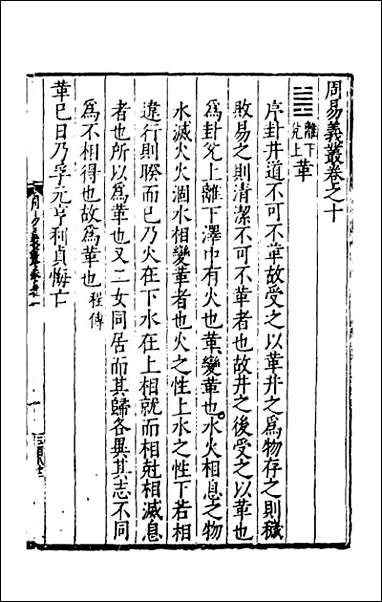 周易義叢卷之十
離下
兊上
革
序卦井道不可不革故受之以革井之爲物存之則穢
敗易之則清潔不可不革者也故井之後受之以革也
爲卦兊上離下澤中有火也革變革也水火相息之物
水滅火火涸水相變革者也火之性上水之性下若相
違行則睽而已乃火在下水在上相就而相尅相滅息
者也所以爲革也又二女同居而其歸各異其志不同
爲不相得也故爲革也程傳
革巳日乃孚元亨利貞悔亡